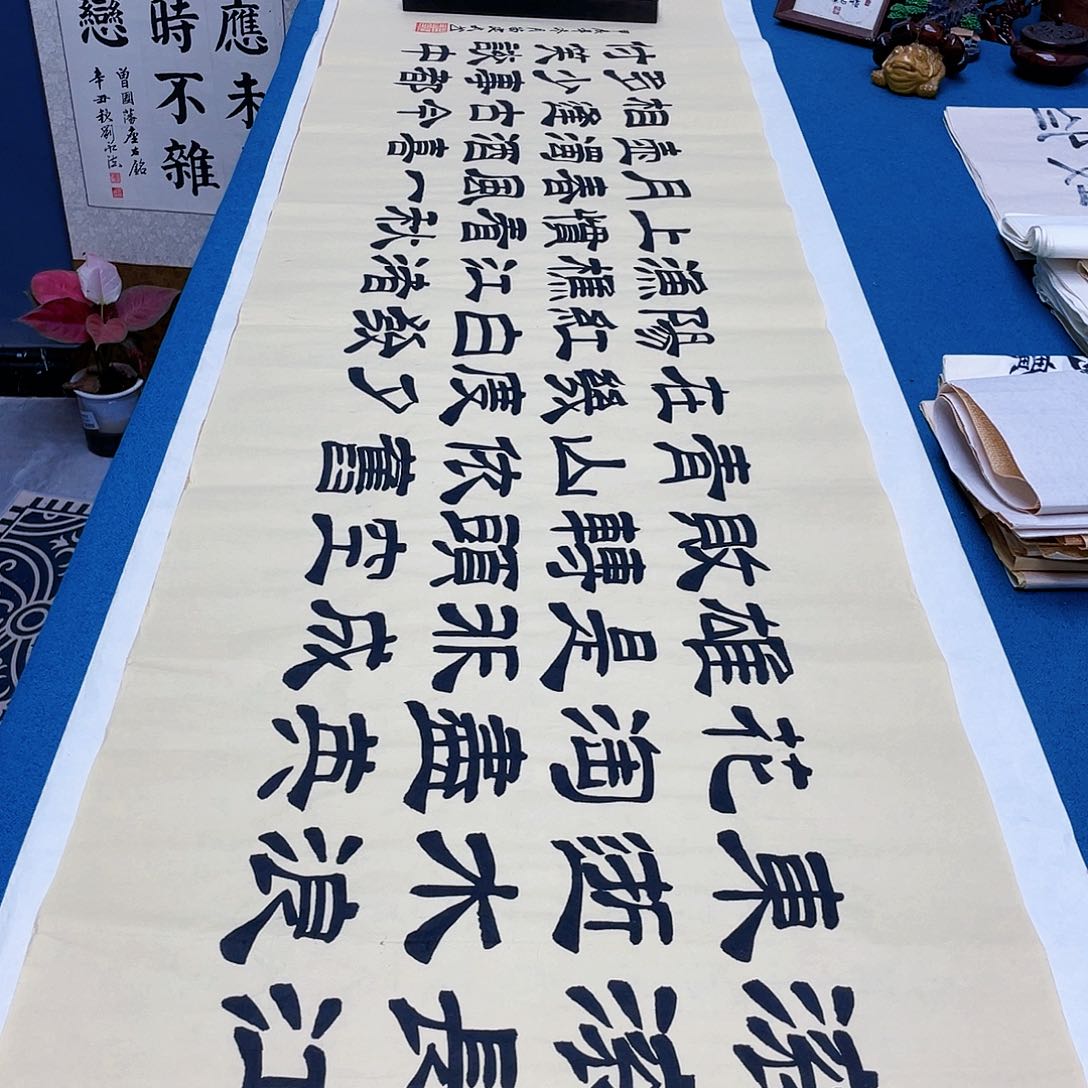 滚滚長江
東逝水浪
花淘盡英
雄是非成
敗轉頭空
青山依舊
在幾度夕
陽紅白髮
漁樵江渚
上慣看秋
月春風一
壺濁酒喜
相逢古今
多少事都
付笑談中
應未
時不雜
戀
曾國藩座右銘
辛丑秋劉